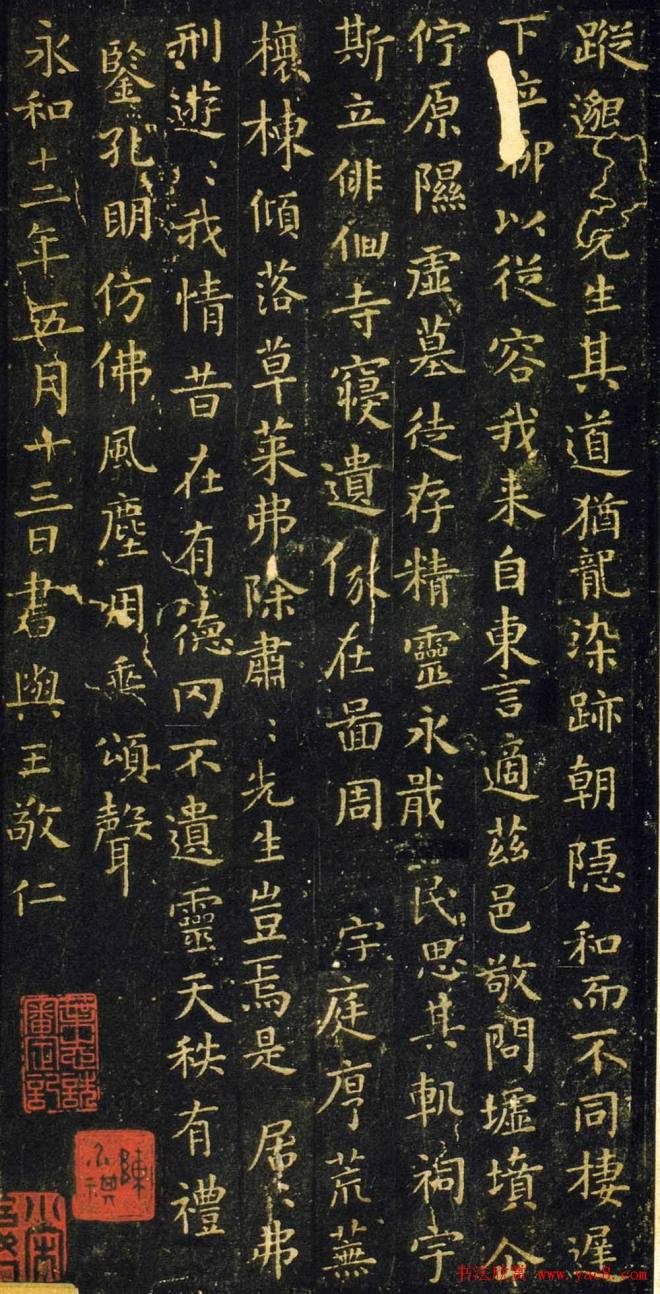 蹤邈〻先生其道猶龍染跡朝隐和而不同棲遲
下位聊以從容我来自東言適茲邑敬問墟墳企
佇原隰虛墓徒存精靈永戢民思其軌祠宇
斯立俳佪寺寢遺像在啚周宇庭序荒蕪
榱棟傾落草萊弗除肅〻先生豈焉是居〻弗
刑遊〻我情昔在有德罔不遺靈天秩有禮
鑒孔明仿佛風塵用垂頌聲
永和十二年五月十三日書與王敬仁
书法欣赏 www.yac8.com